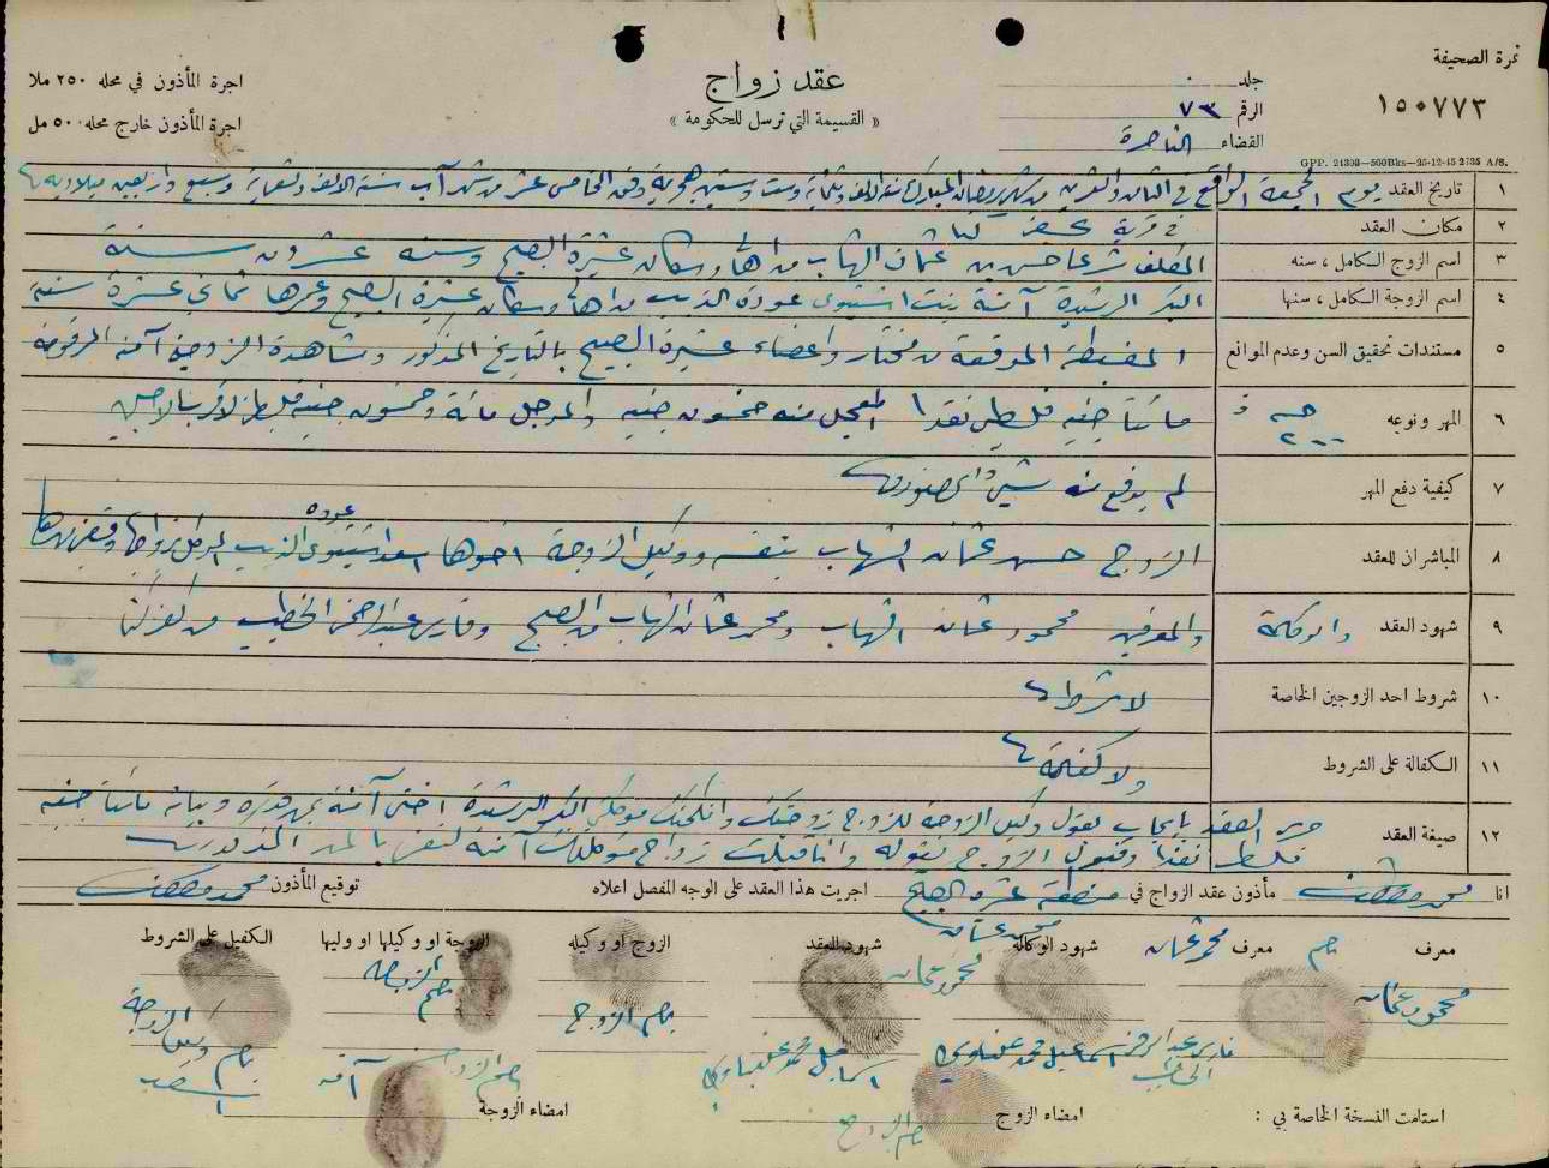 نمرة الصحيفة
١٥٠٧٧٣
جلد
الرقم ٧٣
القضاء الناصرة
عقد زواج
« القسيمة التي ترسل للحكومة »
اجرة المأذون في محله ٢٥٠ ملا
اجرة المأذون خارج محله ٥٠٠ مل
GPP. 21303—500 Bks—25-12-45 2/35 A/S.
١ تاريخ العقد يوم الجمعة الواقع في الثامن والعشرين من شهر رمضان المبارك سنة الالف وثلثماية وست وستين هجرية وفق الخامس عشر من شهر آب سنة الالف وتسعماية وسبع واربعين ميلادية
٢ مكان العقد في قرية كفر كنا
٣ اسم الزوج الكامل ، سنه المكلف شرعا حسن بن عثمان الشهاب من اهالي وسكان عشيرة الصبيح وسنه عشرون سنة
٤ اسم الزوجة الكامل ، سنها البكر الرشيدة آمنة بنت اشتيوي عودة الذيب من اهالي وسكان عشيرة الصبيح وعمرها ثماني عشرة سنة
٥ مستندات تحقيق السن وعدم الموانع المضبطة الموقعة من مختار واعضاء عشيرة الصبيح بالتاريخ المذكور ومشاهدة الزوجة آمنة المرقومة
٦ المهر ونوعه ٢٠٠ مائتا جنيه فلسطيني نقدا المعجل منه خمسون جنيه والمؤجل مائة وخمسون جنيه فلسطيني لاقرب الاجلين
٧ كيفية دفع المهر لم يدفع منه شيء
٨ المباشران للعقد الزوج حسن عثمان الشهاب بنفسه ووكيل الزوجة اخوها اسعد اشتيوي عوده الذيب
٩ شهود العقد والوكالة والمعرفين محمود عثمان الشهاب ومحمد عثمان الشهاب من الصبيح وفارس عبد الرحمن الخطيب من كفر كنا
١٠ شروط احد الزوجين الخاصة لا شرط
١١ الكفالة على الشروط ولا كفالة
١٢ صيغة العقد جرى العقد بايجاب بقول وكيل الزوجة للزوج زوجتك وانكحتك موكلتي البكر الرشيدة اختي آمنة بمهر قدره وبيانه مائتا جنيه
فلسطيني نقدا وقبول الزوج بقوله وانا قبلت زواج موكلتك آمنة لنفسي بالمهر المذكور
انا مأذون عقد الزواج في منطقة عشيرة الصبيح اجريت هذا العقد على الوجه المفصل اعلاه توقيع المأذون
معرف معرف محمد عثمان شهود الوكالة شهود العقد الزوج او وكيله الزوجة او وكيلها او وليها الكفيل على الشروط
محمد عثمان
محمود عثمان محمود عثمان بصم الزوج بصم الزوجة
فارس عبد الرحمن الخطيب اسماعيل محمد اسماعيل محمد آمنة
بصم وكيل الزوجة اسعد
استلمت النسخة الخاصة بي : امضاء الزوج بصم الزوج امضاء الزوجة